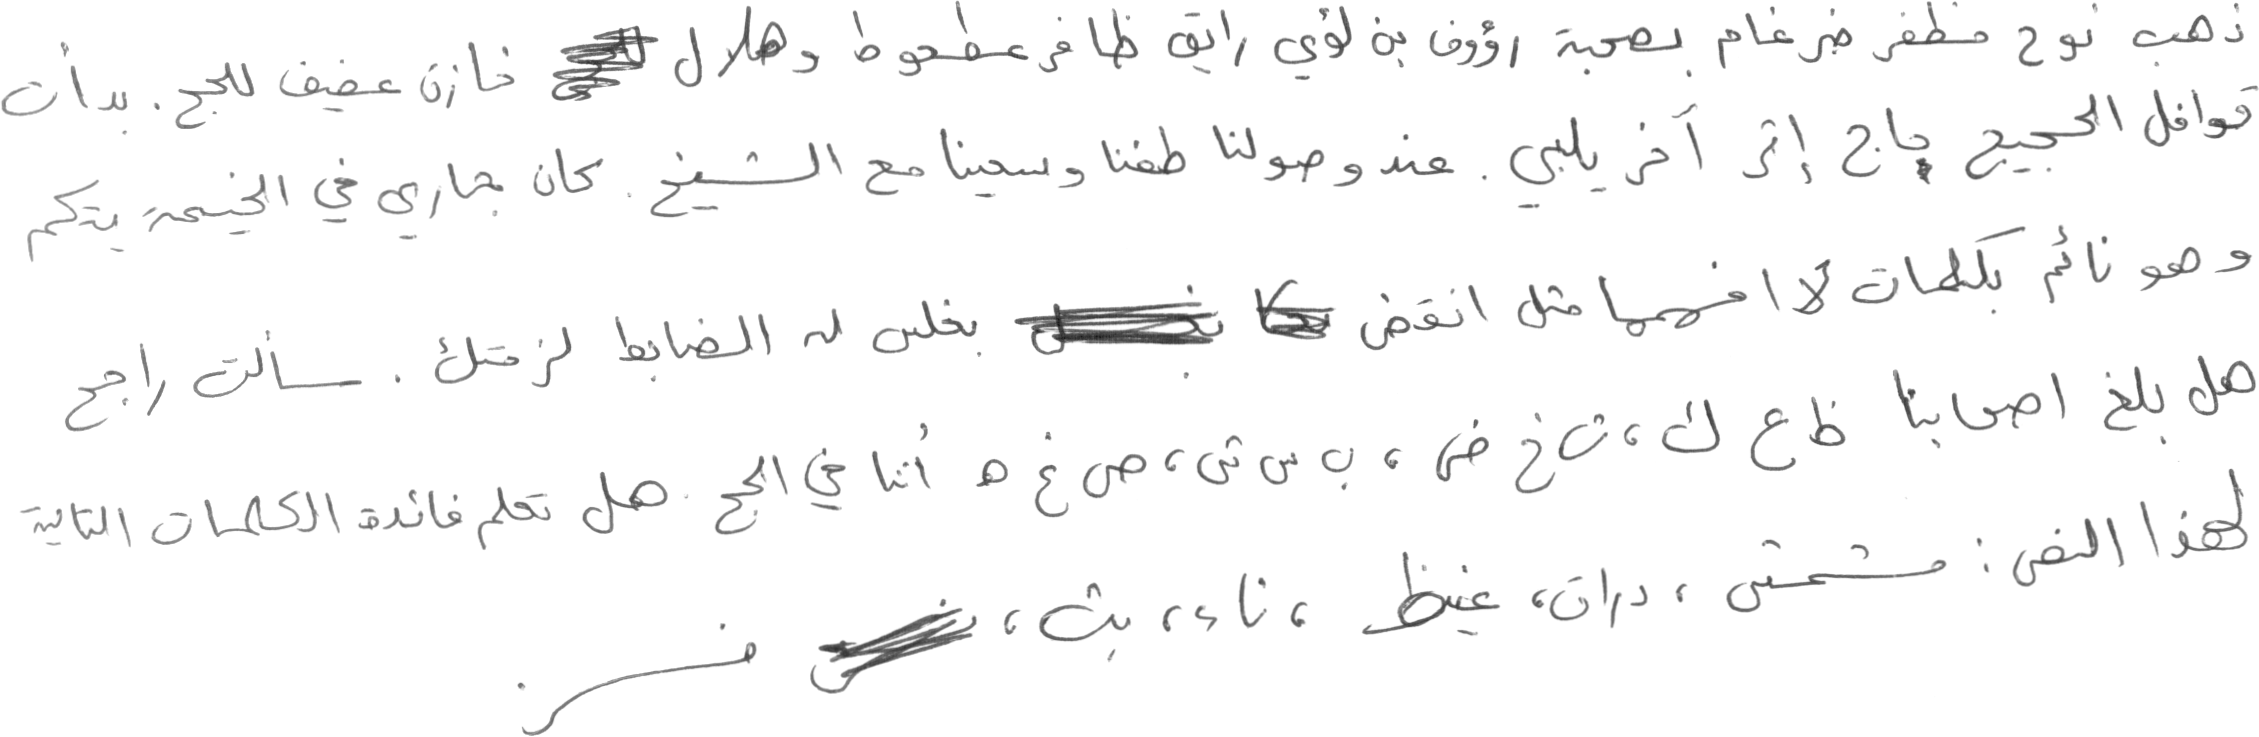 ذهب نوح مظفر ضرغام بصحبة رؤوف بن لؤي رايق ظافر عطعوط وهلال خازن عفيف للحج. بدأت
قوافل الحجيج حاج إثر آخر يلبي. عند وصولنا طفنا وسعينا مع الشيخ. كان جاري في الخيمة يتكم
وهو نائم بكلمات لا افهمها مثل انقض بغلس له الضابط لزمتك. سألت راجح
هل بلغ اصحابنا ظ ع ك، ث خ ض، ب س ش، ص غ ه أننا في الحج. هل تعلم فائدة الكلمات التالية
لهذا النص: مشمش، دراق، غيظ، ناء، بث،